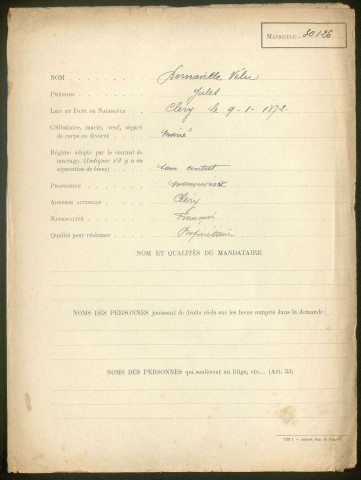 MATRICULE : 20126
NOM
PRÉNOMS Jules
LIEU ET DATE DE NAISSANCE Cléry le 9-1-1872
Célibataire, marié, veuf, séparé
de corps ou divorcé marié
Régime adopté par le contrat de
mariage. (Indiquer s'il y a eu
séparation de biens) sans contrat
PROFESSION manouvrier
ADRESSE ACTUELLE Cléry
NATIONALITÉ Française
Qualité pour réclamer Propriétaire
NOM ET QUALITÉS DU MANDATAIRE
NOMS DES PERSONNES jouissant de droits réels sur les biens compris dans la demande :
NOMS DES PERSONNES qui soulèvent un litige, etc... (Art. 33)